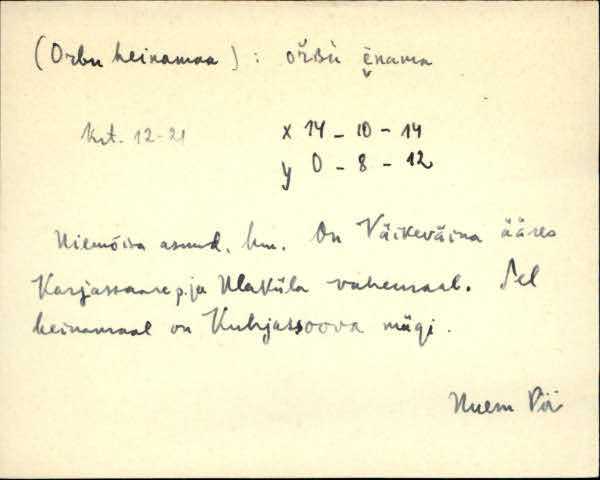 (Orbu heinamaa) : or̆ʙù e̬nama
Krt. 12-21
x 14 - 10 - 14
y 0 - 8 - 12
asund. hm. On Väikeväina ääres
Karjassaare p. ja Ulaküla vahemaal. Sel
heinamaal on Kuhjassoova mägi.